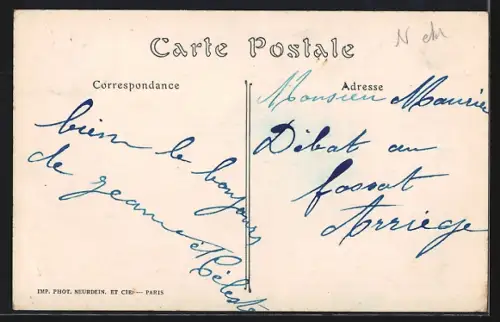 Carte Postale
N ch
Correspondance
bien le bonjour
de jeanne et
Céleste
Adresse
Monsieur Maurice
Débat au
fossat
Arriège
IMP. PHOT. NEURDEIN. ET CIE. — PARIS